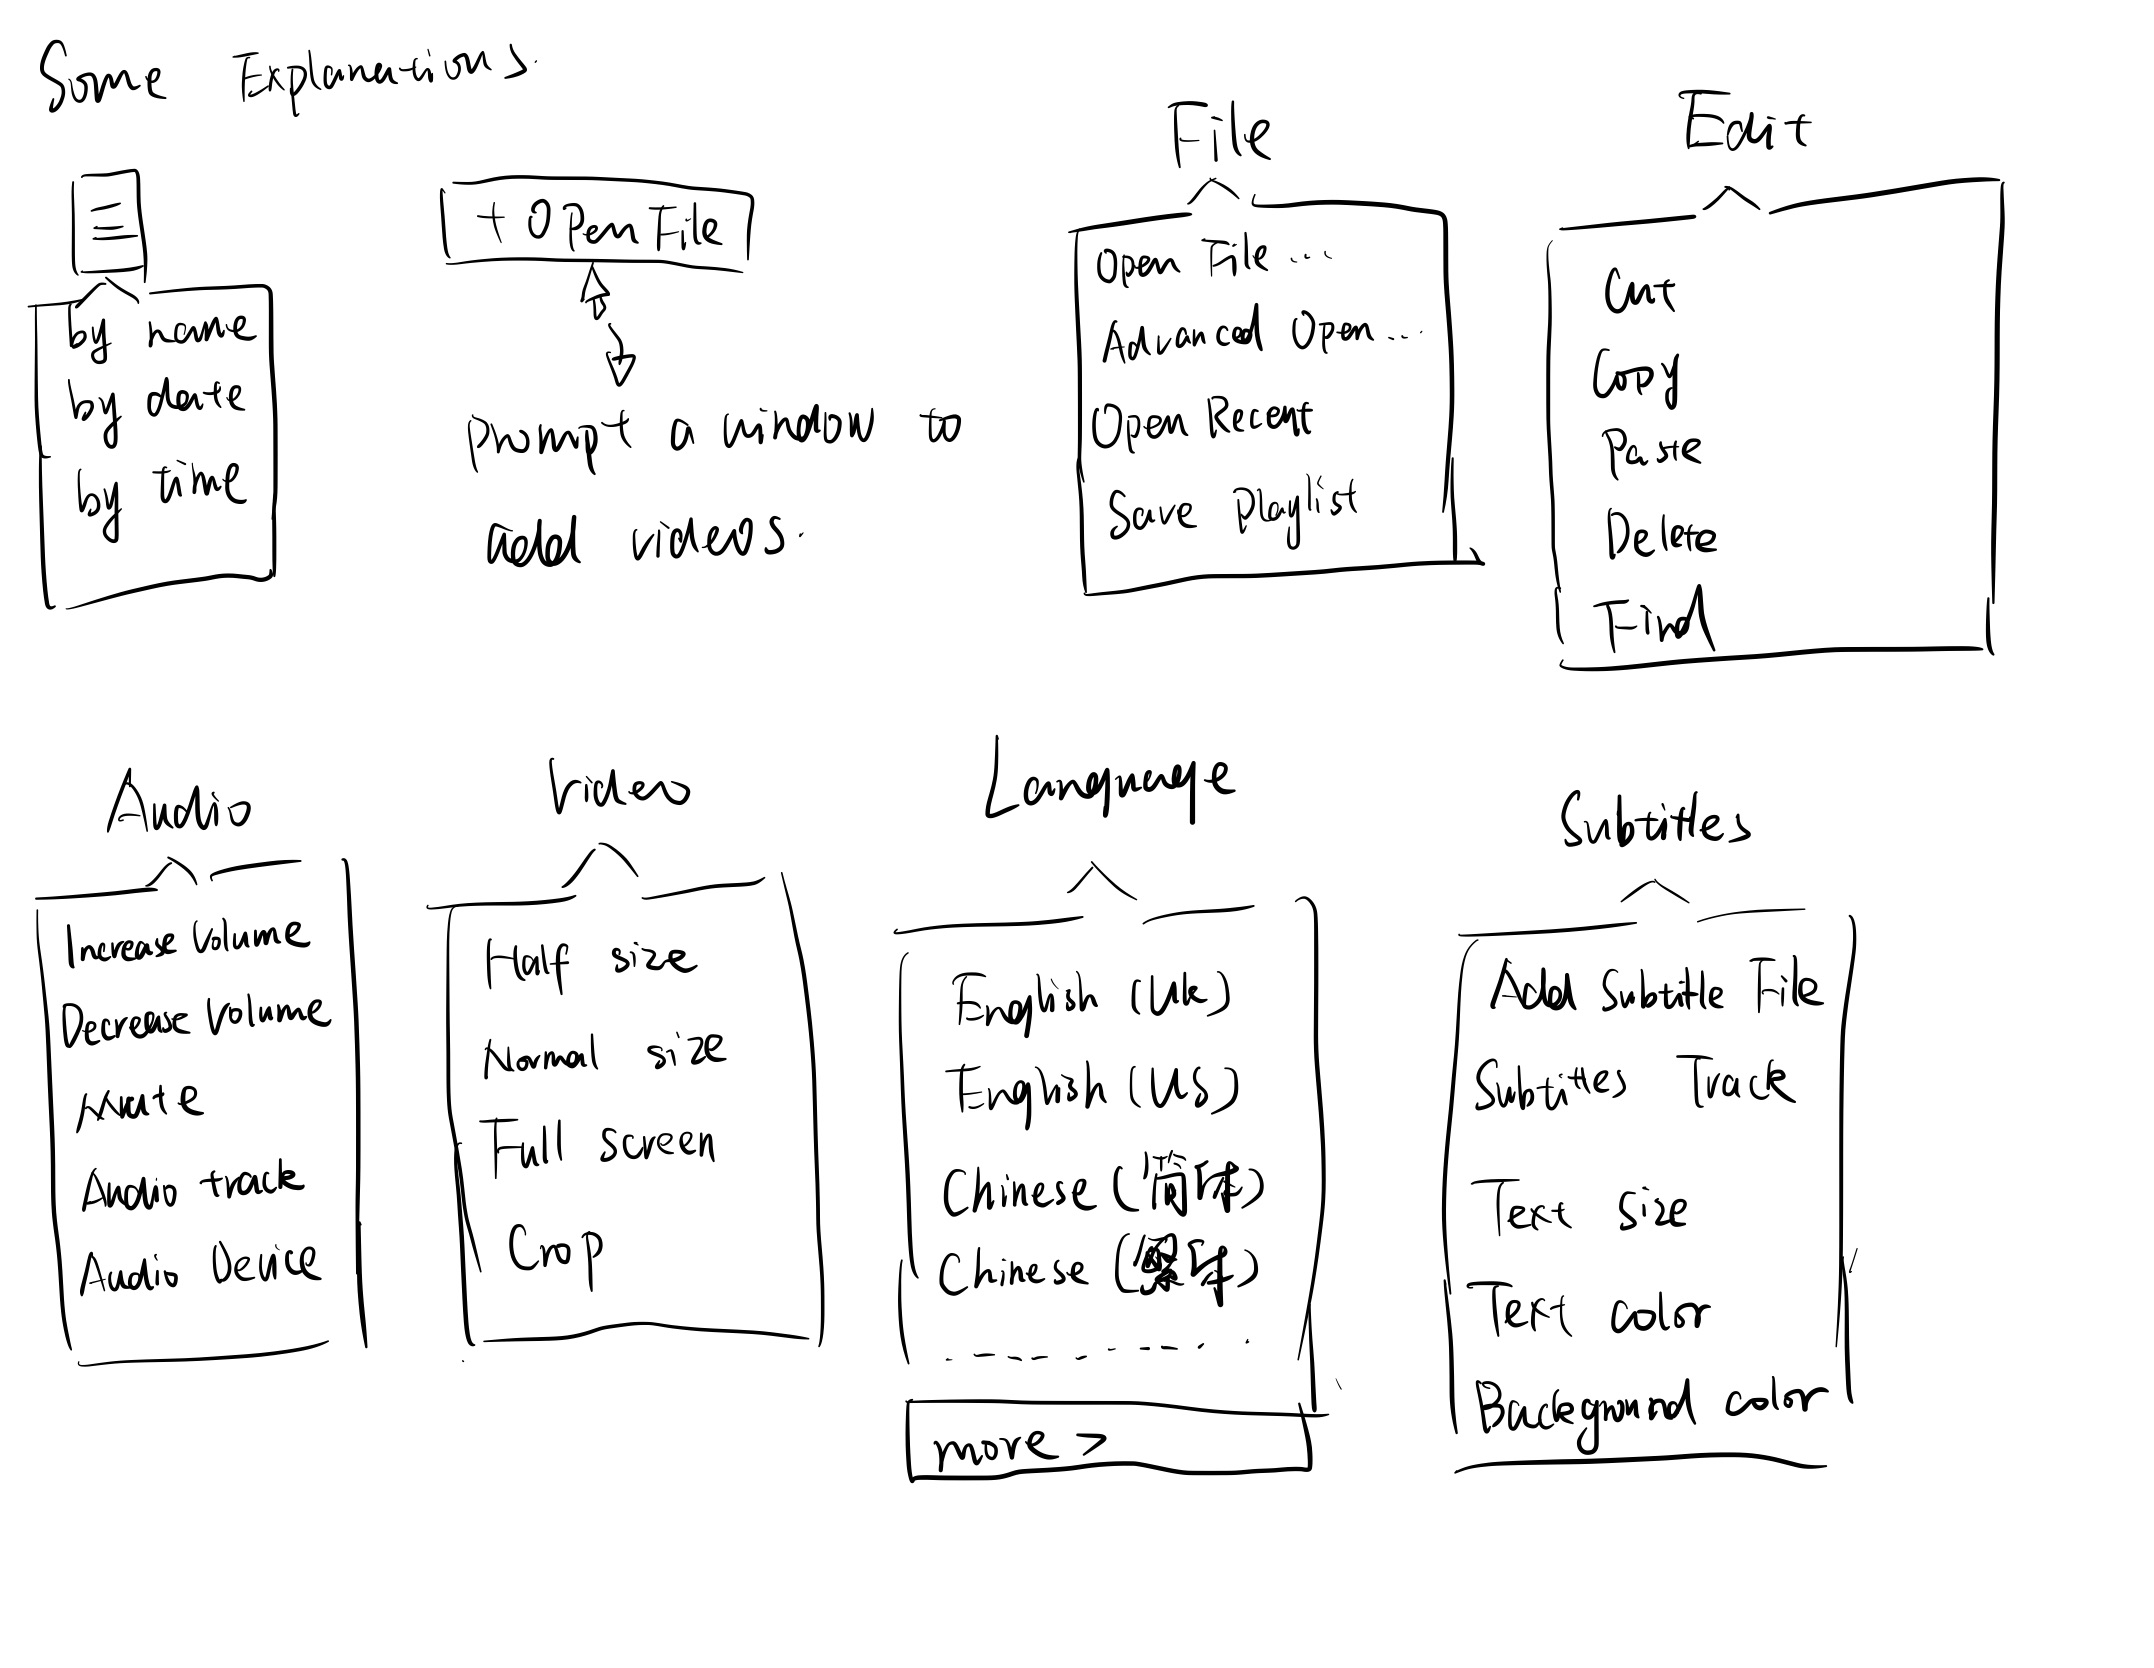 Some Explanations.
by name
by date
by time
+ Open File
Prompt a window to
add videos.
File
Open File ...
Advanced Open...
Open Recent
Save Playlist
Edit
Cut
Copy
Paste
Delete
Find
Audio
Increase Volume
Decrease Volume
Mute
Audio track
Audio Device
Video
Half size
Normal size
Full screen
Crop
Language
English (UK)
English (US)
Chinese (简体)
Chinese (繁体)
more >
Subtitles
Add Subtitle File
Subtitles Track
Text size
Text color
Background color